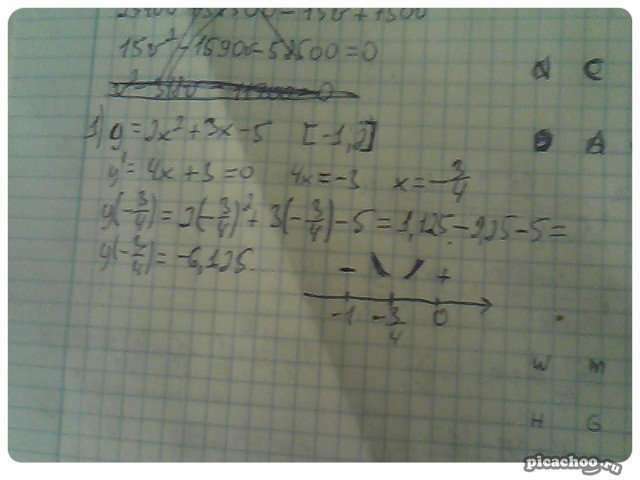 15v² - 1590v - 58500 = 0
1) y = 2x² + 3x - 5 [-1, 2]
y' = 4x + 3 = 0 4x = -3 x = -3/4
y(-3/4) = 2(-3/4)² + 3(-3/4) - 5 = 1,125 - 2,25 - 5 =
y(-3/4) = -6,125
- +
-1 -3/4 0
picachoo.ru